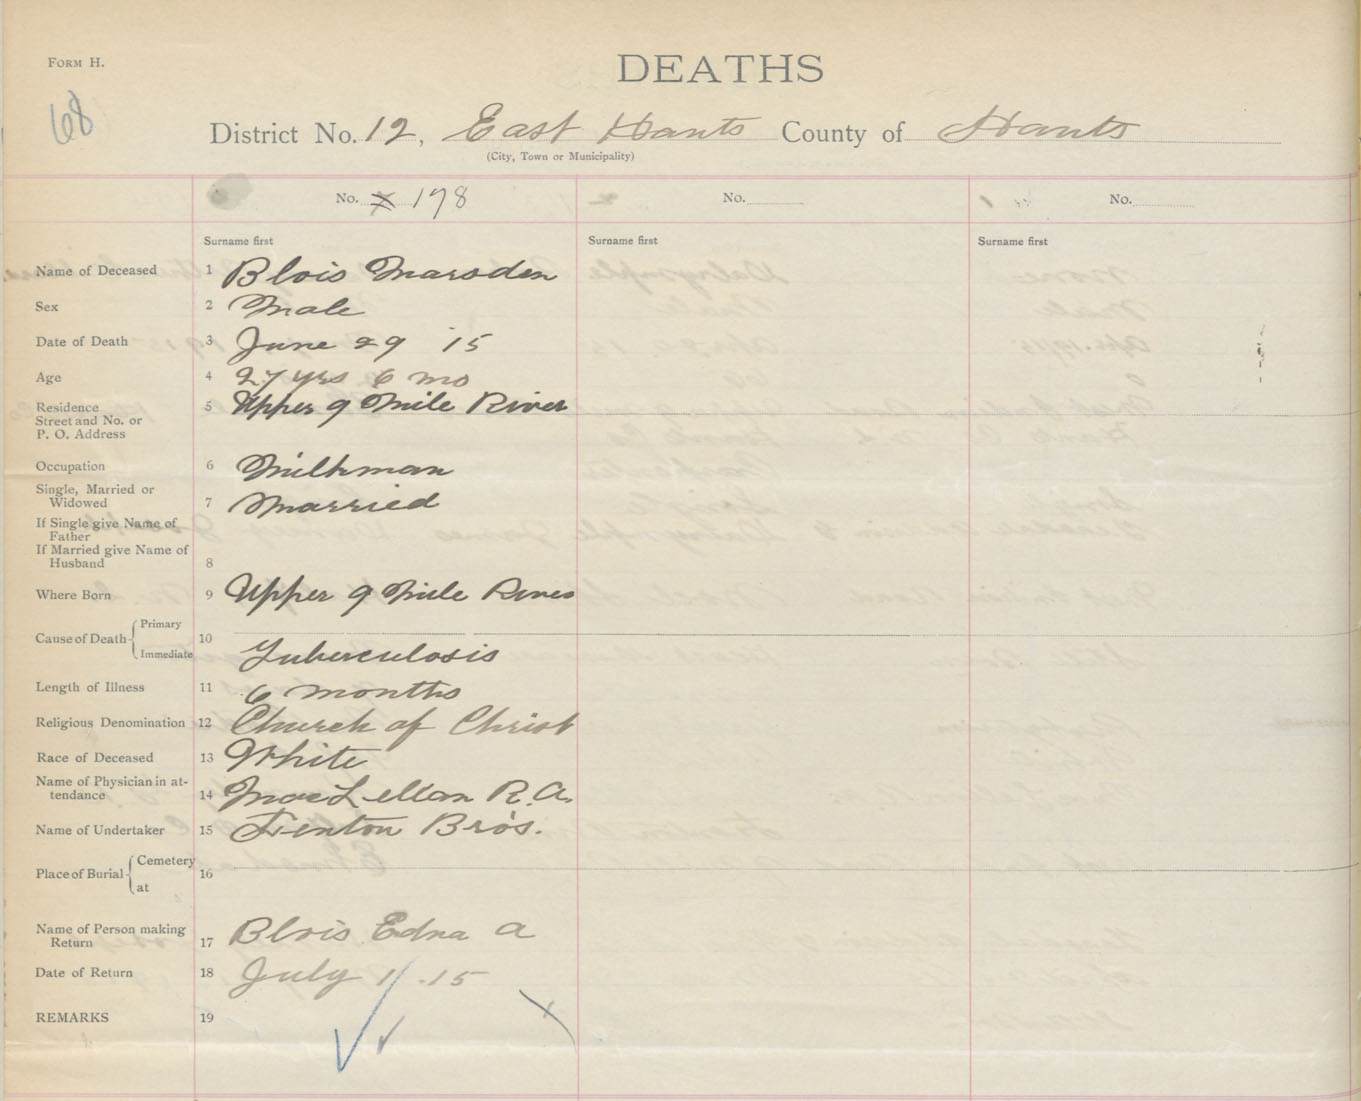 FORM H.
DEATHS
68
District No. 12, East Hants County of Hants
(City, Town or Municipality)
No. 178 No. No.
Surname first Surname first Surname first
Name of Deceased 1 Blois Marsden
Sex 2 Male
Date of Death 3 June 29 15
Age 4 27 yrs 6 mo
Residence 5 Upper 9 Mile River
Street and No. or
P. O. Address
Occupation 6 Milkman
Single, Married or
Widowed 7 Married
If Single give Name of
Father
If Married give Name of
Husband 8
Where Born 9 Upper 9 Mile River
Primary
Cause of Death 10
Immediate Tuberculosis
Length of Illness 11 6 months
Religious Denomination 12 Church of Christ
Race of Deceased 13 White
Name of Physician in at-
tendance 14 MacLellan R. A.
Name of Undertaker 15 Fenton Bro's.
Cemetery
Place of Burial 16
at
Name of Person making
Return 17 Blois Edna A
Date of Return 18 July 1 .15
REMARKS 19